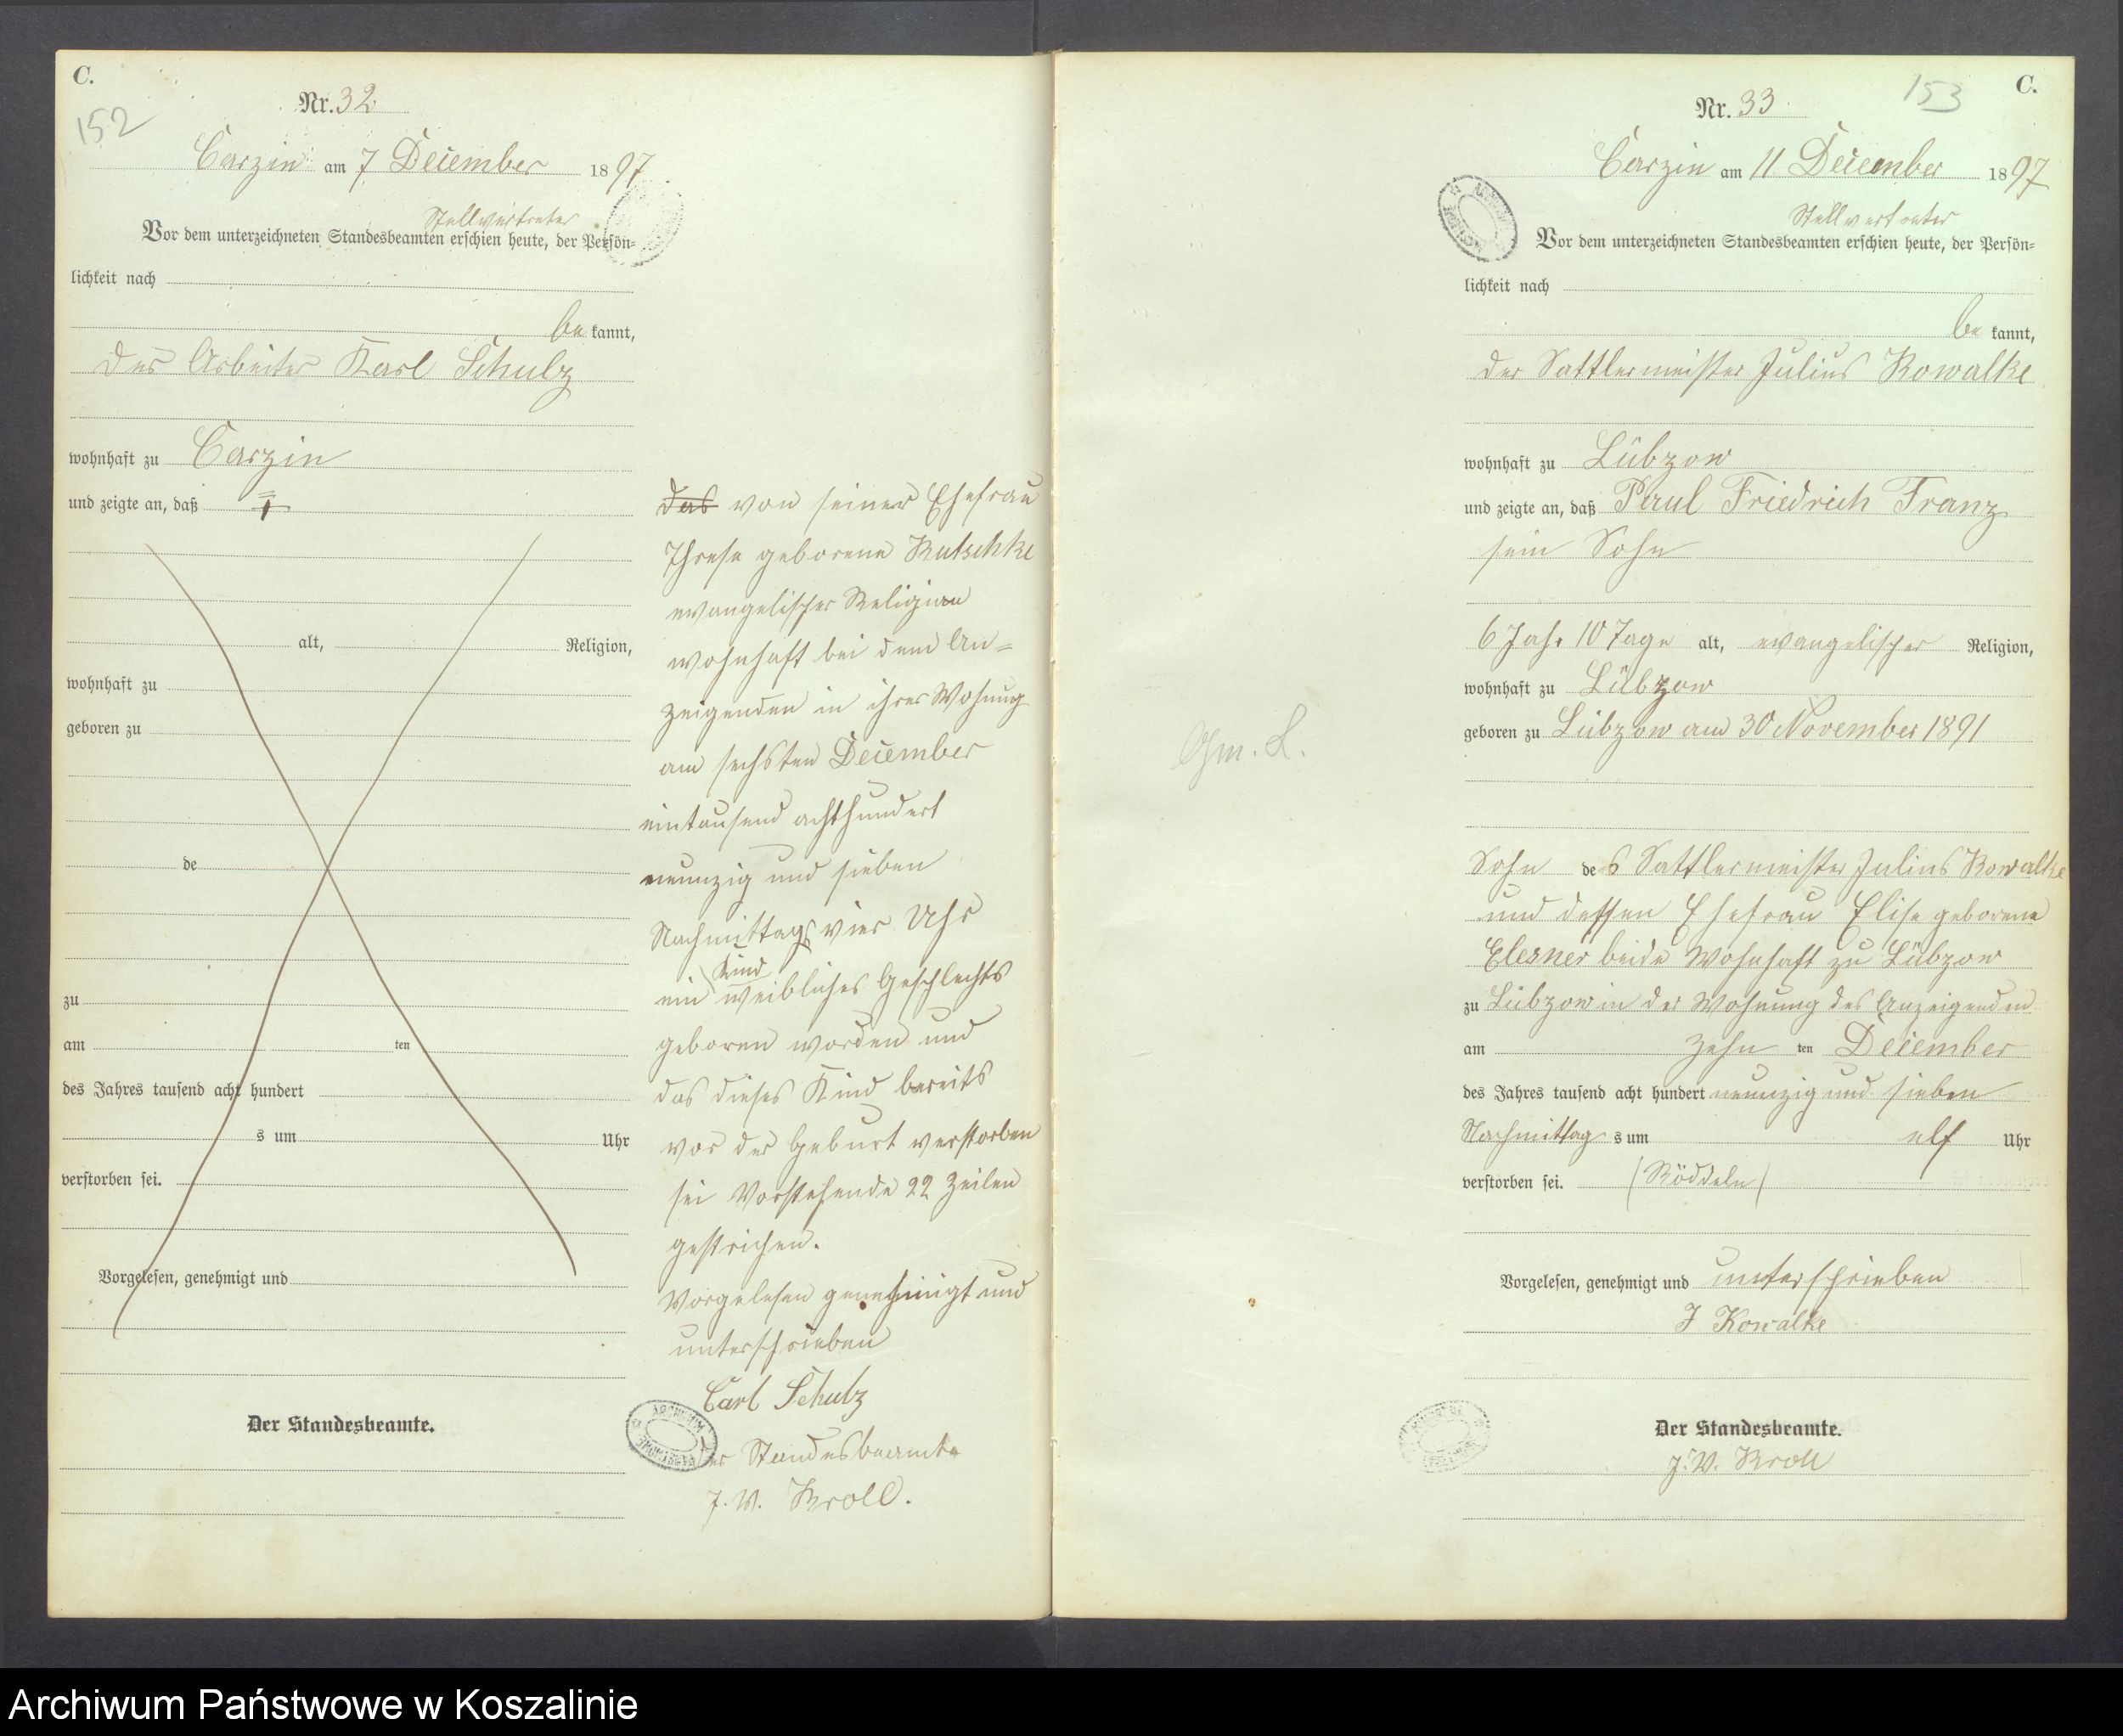 C.
152
Nr. 32
Carzin am 7 December 1897
Stellvertreter
Vor dem unterzeichneten Standesbeamten erschien heute, der Persön=
lichkeit nach
be kannt,
der Arbeiter Karl Schulz
wohnhaft zu Carzin
und zeigte an, daß
alt, Religion,
wohnhaft zu
geboren zu
de
zu
am ten
des Jahres tausend acht hundert
s um Uhr
verstorben sei.
Vorgelesen, genehmigt und
Der Standesbeamte.
das von seiner Ehefrau
Threse geborene Rutschke
evangelischer Religion
wohnhaft bei dem An=
zeigenden in ihrer Wohnung
am sechsten December
eintausend achthundert
neunzig und sieben
Nachmittags vier Uhr
Kind
ein weibliches Geschlechts
geboren worden und
das dieses Kind bereits
vor der Geburt verstorben
sei Vorstehende 22 Zeilen
gestrichen.
Vorgelesen genehmigt und
unterschrieben
Carl Schulz
Der Standesbeamte
J. V. Kroll.
C.
153
Nr. 33
Carzin am 11 December 1897
Stellvertreter
Vor dem unterzeichneten Standesbeamten erschien heute, der Persön=
lichkeit nach
be kannt,
der Sattlermeister Julius Kowalke
wohnhaft zu Lübzow
und zeigte an, daß Paul Friedrich Franz
sein Sohn
6 Jahr 10 Tage alt, evangelischer Religion,
wohnhaft zu Lübzow
geboren zu Lübzow am 30 November 1891
Sohn des Sattlermeister Julius Kowalke
und dessen Ehefrau Elise geborene
beide Wohnhaft zu Lübzow
zu Lübzow in der Wohnung des Anzeigenden
am zehn ten December
des Jahres tausend acht hundert neunzig und sieben
Nachmittag s um elf Uhr
verstorben sei. (Röddeln)
Vorgelesen, genehmigt und unterschrieben
J Kowalke
Der Standesbeamte.
J. V. Kroll
Archiwum Państwowe w Koszalinie